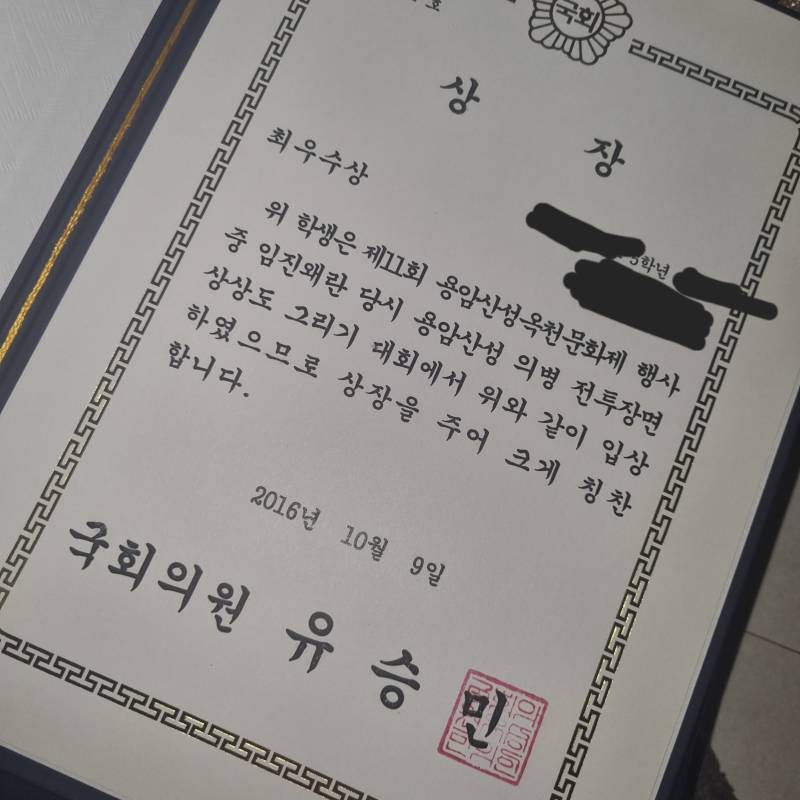 호
국회
상 장
최우수상
학년
위 학생은 제11회 용암산성옥천문화제 행사
중 임진왜란 당시 용암산성 의병 전투장면
상상도 그리기 대회에서 위와 같이 입상
하였으므로 상장을 주어 크게 칭찬
합니다.
2016년 10월 9일
국회의원 유승민